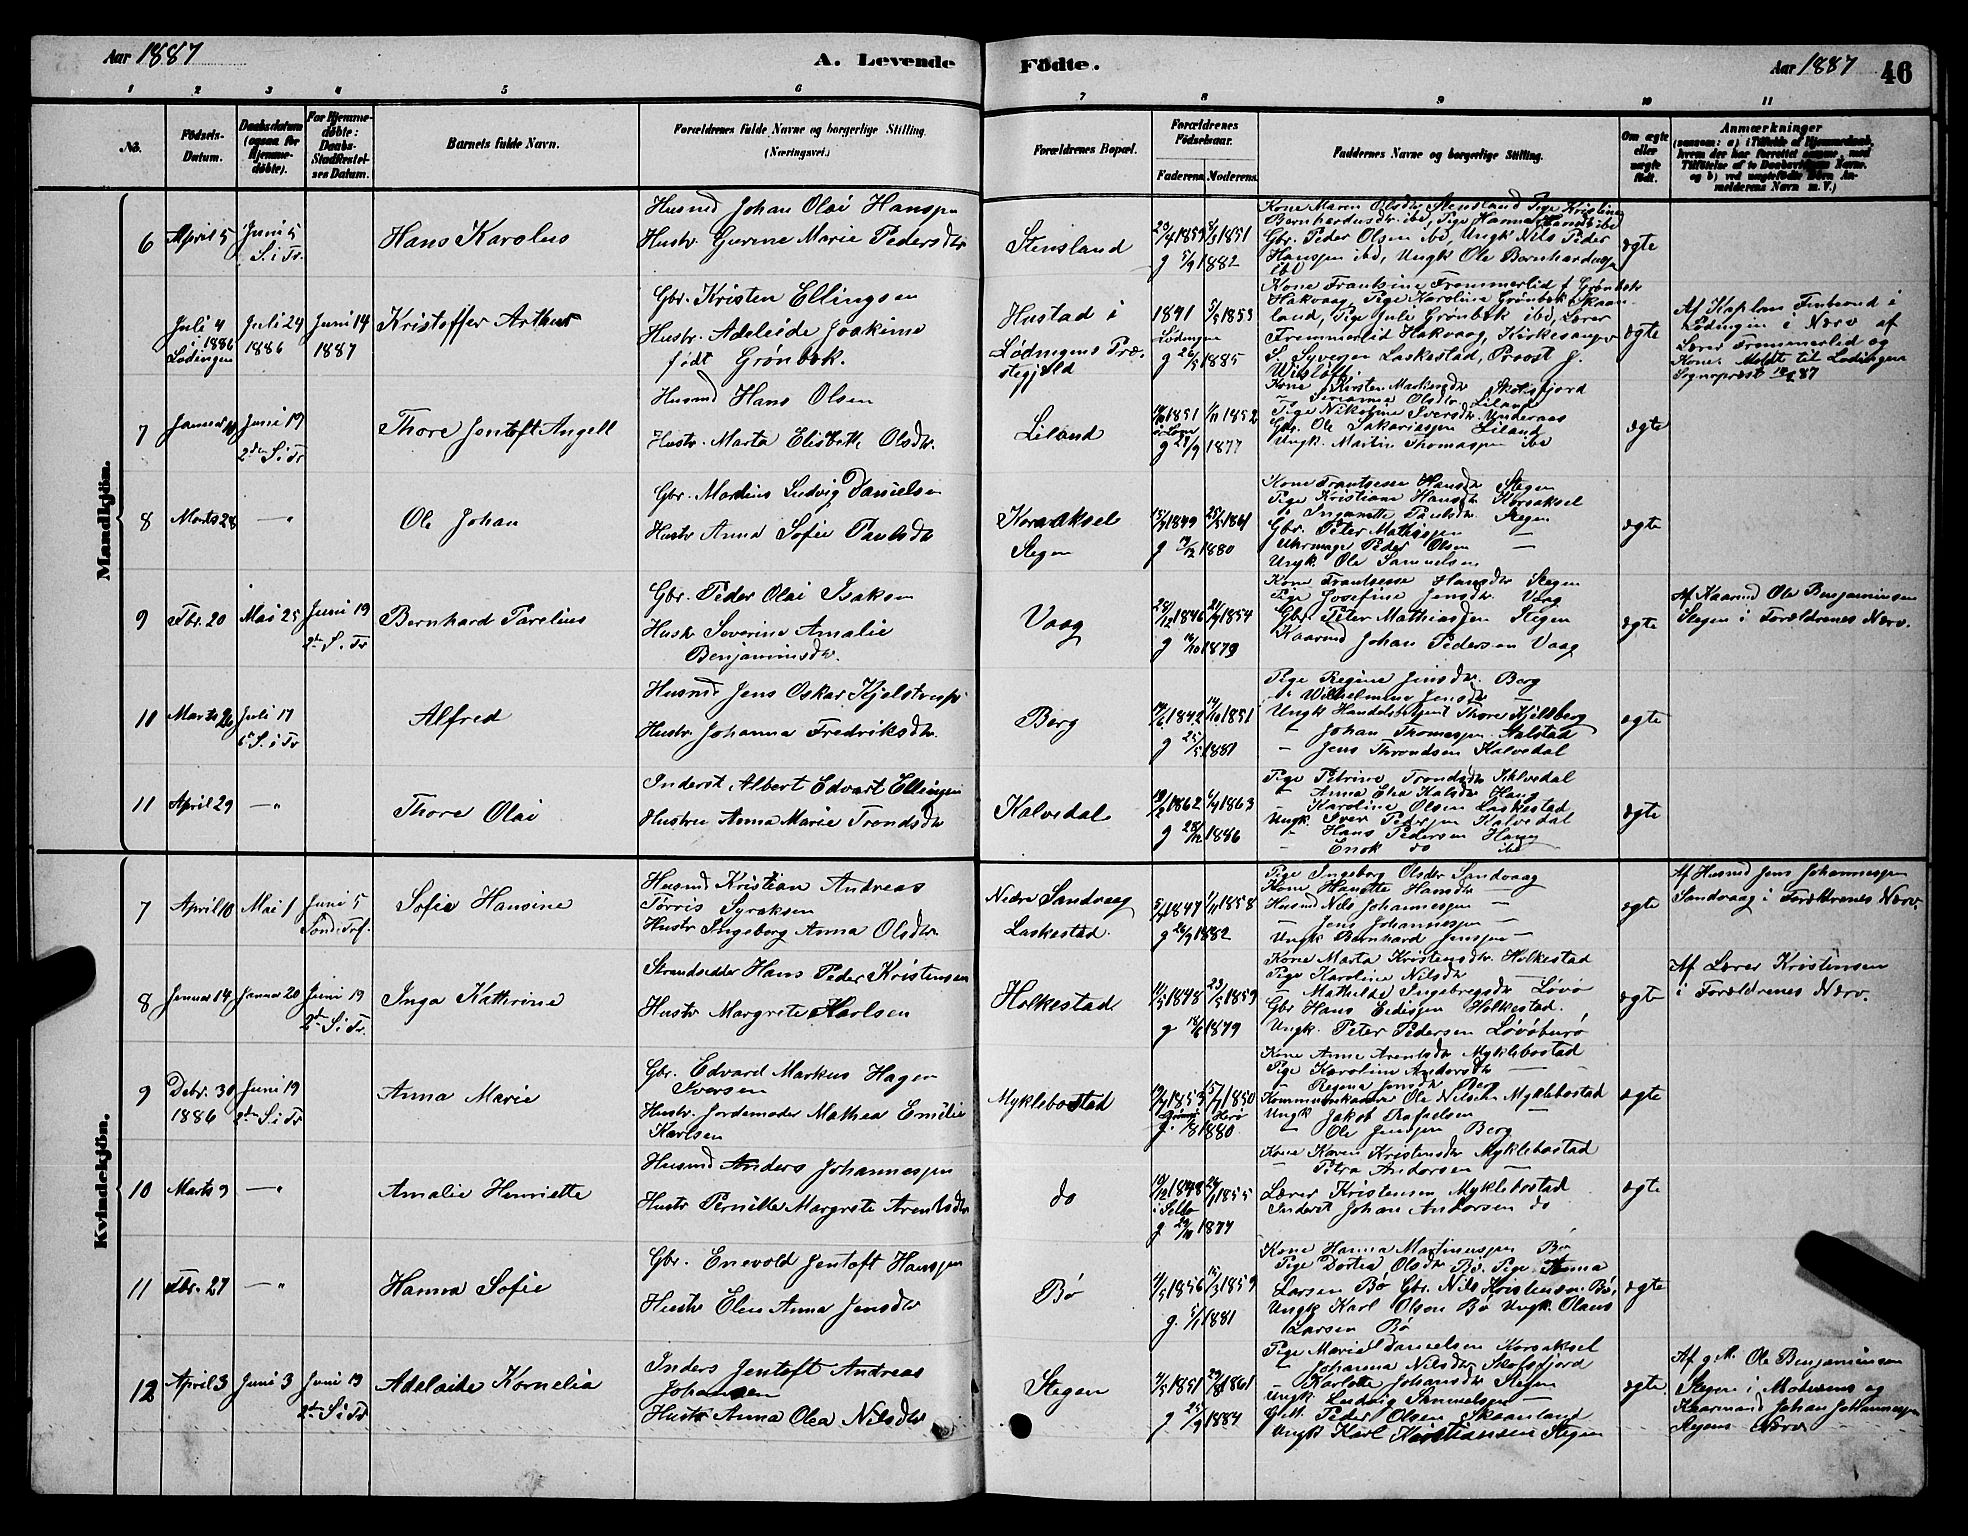 Aar 1887
A. Levende
Födte.
Aar 1887
46
1 2 3 4 5 6 7 8 9 10 11
No.
Födsels-Datum.
Daabsdatum (ogsaa for Hjemme-døbte).
For Hjemme-døbte: Daabs-Stadfæstel-ses Datum.
Barnets fulde Navn.
Forældrenes fulde Navne og borgerlige Stilling. (Næringsvei.)
Forældrenes Bopæl.
Forældrenes Födselsaar.
Faderens. Moderens.
Faddernes Navne og borgerlige Stilling.
Om ægte eller uægte födt.
Anmærkninger
Mandkjön.
6 April 5 Juni 5 S. i Tr. Hans Karolus
Husmd Johan Olai Hanssen
Hustr. Gurine Marie Pedersdtr
Stensland
1851
g 1882
Kone Maren Olsdtr Stensland Pige Kristine
Bernhardusdtr ibd, Pige Hanna
Gbr. Peder Olsen ibd, Ungk Nils Peder
Hanssen ibd, Ungk Ole Bernhardussen
ibd
ægte
Juli 4 1886 Lødingen Juli 24 1886 Juni 14 1887 Kristoffer Arthur
Gbr. Kristen Ellingsen
Hustr. Adeleide Joakime
født Grønbek.
Hustad i
Lødingens Præ-
stegjeld
1841 5/5 1853
Lødingen
g 26/5 1885
Kone Frantsine Tremmerlid f Grønbek
Hakvaag, Pige Karoline Grønbek Skaan-
land, Pige Jule Grønbek ibd, Lærer
Tremmerlid Hakvaag, Kirkesanger
S. Syversen Laskestad, Provst J.
ægte
Af Kaplan Finbrud i
Lødingen i Nærv af
Lærer Tremmerlid og
Kone. Meldt til Lødingens
Sognepræst 87
7 Januar Juni 19 2den S i Tr Thore Jentoft Angell
Husmd Hans Olsen
Hustr. Marta Elisbeth Olsdtr.
Leland
1851 1852
g 1877
Kone Kirsten Skotsfjord
Olsdtr. Leland
Pige Nikoline Iversdtr Underaas
Gbr. Ole Sakariassen Leland
Ungk. Martin Thomassen ibd
ægte
8 Marts 28 —"— Ole Johan
Gbr. Martius Ludvig Danielsen
Hustr Anna Sofie Paulsdtr
Korsaksel
Stegen
1849 1861
g 1880
Kone Frantsesse Hansdtr Stegen
Pige Kristiane Hansdtr Korsaksel
Paulsdtr Stegen
Gbr. Peter Mathiassen —
Uhrmager Peder Olsen —
Ungk Ole Samuelsen
ægte
9 Fbr. 20 Mai 25 Juni 19 2den S. Tr Bernhard Parelius
Gbr. Peder Olai Isaksen
Hustr Severine Amalie
Benjaminsdtr.
Vaag
28/12 1846 1854
g 1879
Kone Frantsesse Hansdtr Stegen
Pige Josefine Jensdtr Vaag
Gbr. Peter Mathiassen Stegen
Kaarmd Johan Pedersen Vaag
ægte
Af Kaarmd Ole Benjaminsen
Stegen i Forældrenes Nærv.
10 Marts 26 Juli 17 6 S. i Tr Alfred
Husmd Jens Oskar Kjelstrup
Hustr. Johanna Fredriksdtr.
Borg
1842 1851
g 25/5 1881
Pige Regine Jensdtr. Borg
" Wilhelmine Jensdtr
Ungk Handelsbetjent Thore Kjeldberg
" Johan Thomassen Halstad
" Jens Throndsen Kalvedal
ægte
11 April 29 —"— Thore Olai
Inderst Albert Edvart Ellingsen
Hustru Anna Marie Trondsdtr
Kalvedal
1862 1863
g 1886
Pige Petrine Trondsdtr Kalvedal
" Anna Elen Kalsdtr Haug
" Karoline Olsen Laskestad
Ungk. Iver Pedersen Kalvedal
" Hans Pedersen Haug
" Enok do ibd
ægte
Kvindekjön.
7 April 10 Mai 1 Juni 5 Sofie Hansine
Husmd Kristian Andreas
Torris Syraksen
Hustr Ingeborg Anna Olsdtr.
Nedre Sandvaag
Laskestad.
1847 1858
g 26/9 1882
Pige Ingeborg Olsdtr Sandvaag
Kone Hanette Hansdtr —
Husmd Nils Johannessen —
— Jens Johannessen
Ungk Bernhard Jenssen —
ægte
Af Husmd Jens Johannessen
Sandvaag i Forældrenes Nærv.
8 Januar 14 Januar 20 Juni 19 2den S i Tr. Inga Kathrine
Strandsidder Hans Peder Kristensen
Hustr Margrete Karlsen
Holkestad
11/5 1848 23/5 1859
g 18/6 1879
Kone Marta Kristensdtr. Holkestad
Pige Karoline Nilsdtr —
— Mathilde Ingebregsdtr Løvø
Gbr Hans Eidissen Holkestad.
Ungk. Peter Pedersen Løvøburø
ægte
Af Lærer Kristensen
i Forældrenes Nærv.
9 Debr. 30 1886 Juni 19 2den S i Tr Anna Marie
Gbr. Edvard Markus Hagen
Iversen
Hustr. Jordemoder Mathea Emilie
Karlsen
Myklebostad
1853 1850
Herø
g. 1880
Kone Anne Arentsdtr Myklebostad
Pige Karoline Andorsdtr —
— Regina Jensdtr Borg
Kommunekasserer Ole Nilsen Myklebostad
Ungk Jakob Rafaelsen —
" Ole Jenssen Borg
ægte
10 Marts 9 —"— Amalie Henriette
Husmd Anders Johannessen
Hustr Pernille Margrete Arentsdtr
do
1848 1855
i Selbo
g 1877
Kone Karen Kristensdtr Myklebostad
— Petra Andorsen —
Lærer Kristensen Myklebostad
Inderst Johan Andorsen do
ægte
11 Fbr. 27 —"— Hanna Sofie
Gbr. Enevold Jentoft Hanssen
Hustr Elen Anna Jensdtr
Bø
1856 15/3 1859
g. 5/1 1881
Kone Hanna Martinussen Bø
Pige Dortea Olsdtr Bø. Pige Anna
Larsen Bø Gbr. Nils Kristensen Bø,
Ungk Karl Olsen Bø Ungk. Olaus
Larsen Bø
ægte
12 April 3 Juni 3 Juni 19 2den S i Tr Adelaide Kornelia
Inders Jentoft Andreas
Johansen
Hustr Anna Olea Nilsdtr
Stegen
1851 29/8 1861
g 25/9 1884
Pige Marie Danielsen Korsaksel
" Johanna Nilsdtr Skotsfjord
" Karlotte Johansdtr Stegen
Ungk. Ludvig Samuelsen —
G.M. Peder Olsen Skaanland
Ungk Karl Kristiansen Stegen
ægte
Af g. M. Ole Benjaminsen
Stegen i Moderens og
Kaarmand Johan Johannessen
Stegens Nærv